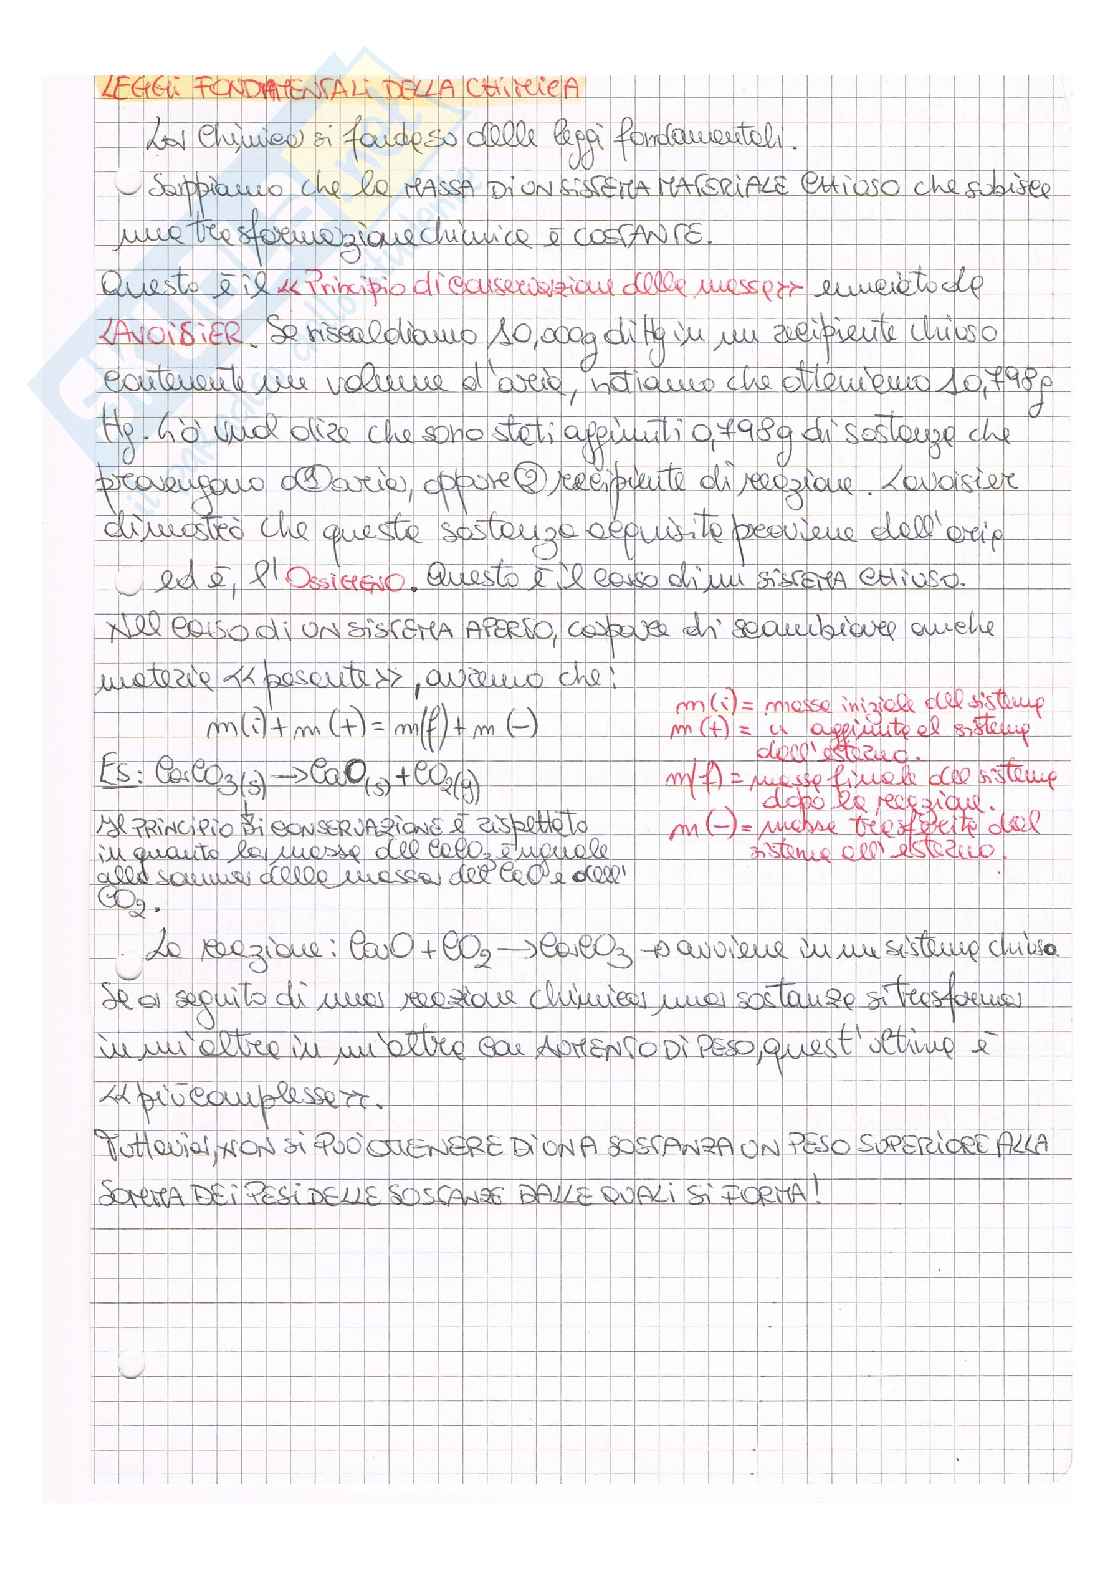 LEGGI FONDAMENTALI DELLA CHIMICA
La Chimica si fonda so delle leggi fondamentali.
Sappiamo che la MASSA DI UN SISTEMA MATERIALE CHIUSO che subisce
una trasformazione chimica è COSTANTE.
Questo è il «Principio di conservazione delle masse» enunciato da
LAVOISIER. Se riscaldiamo 10,000g di Hg in un recipiente chiuso
contenente un volume d'aria, notiamo che otteniamo 10,798g
Hg. Ciò vuol dire che sono stati aggiunti 0,798g di sostanza che
provengono ① aria, oppure ② recipiente di reazione. Lavoisier
dimostrò che questa sostanza acquisita proviene dall'aria
ed è, l'OSSIGENO. Questo è il caso di un SISTEMA CHIUSO.
Nel caso di UN SISTEMA APERTO, capace di scambiare anche
materia «pesante», avremo che:
m(i) + m(+) = m(f) + m(-)
m(i) = massa iniziale del sistema
m(+) = " aggiunta al sistema
dall'esterno.
m(f) = massa finale del sistema
dopo la reazione.
m(-) = massa trasferita dal
sistema all'esterno.
ES: CaCO3(s) → CaO(s) + CO2(g)
Il PRINCIPIO DI CONSERVAZIONE è rispettato
in quanto la massa del CaCO3 è uguale
alla somma della massa del CaO e dell'
CO2.
La reazione: CaO + CO2 → CaCO3 → avviene in un sistema chiuso
Se a seguito di una reazione chimica una sostanza si trasforma
in un'altra in un'altra con AUMENTO DI PESO, quest'ultima è
«più complessa».
Tuttavia, NON SI PUÒ OTTENERE DI UNA SOSTANZA UN PESO SUPERIORE ALLA
SOMMA DEI PESI DELLE SOSTANZE DALLE QUALI SI FORMA!